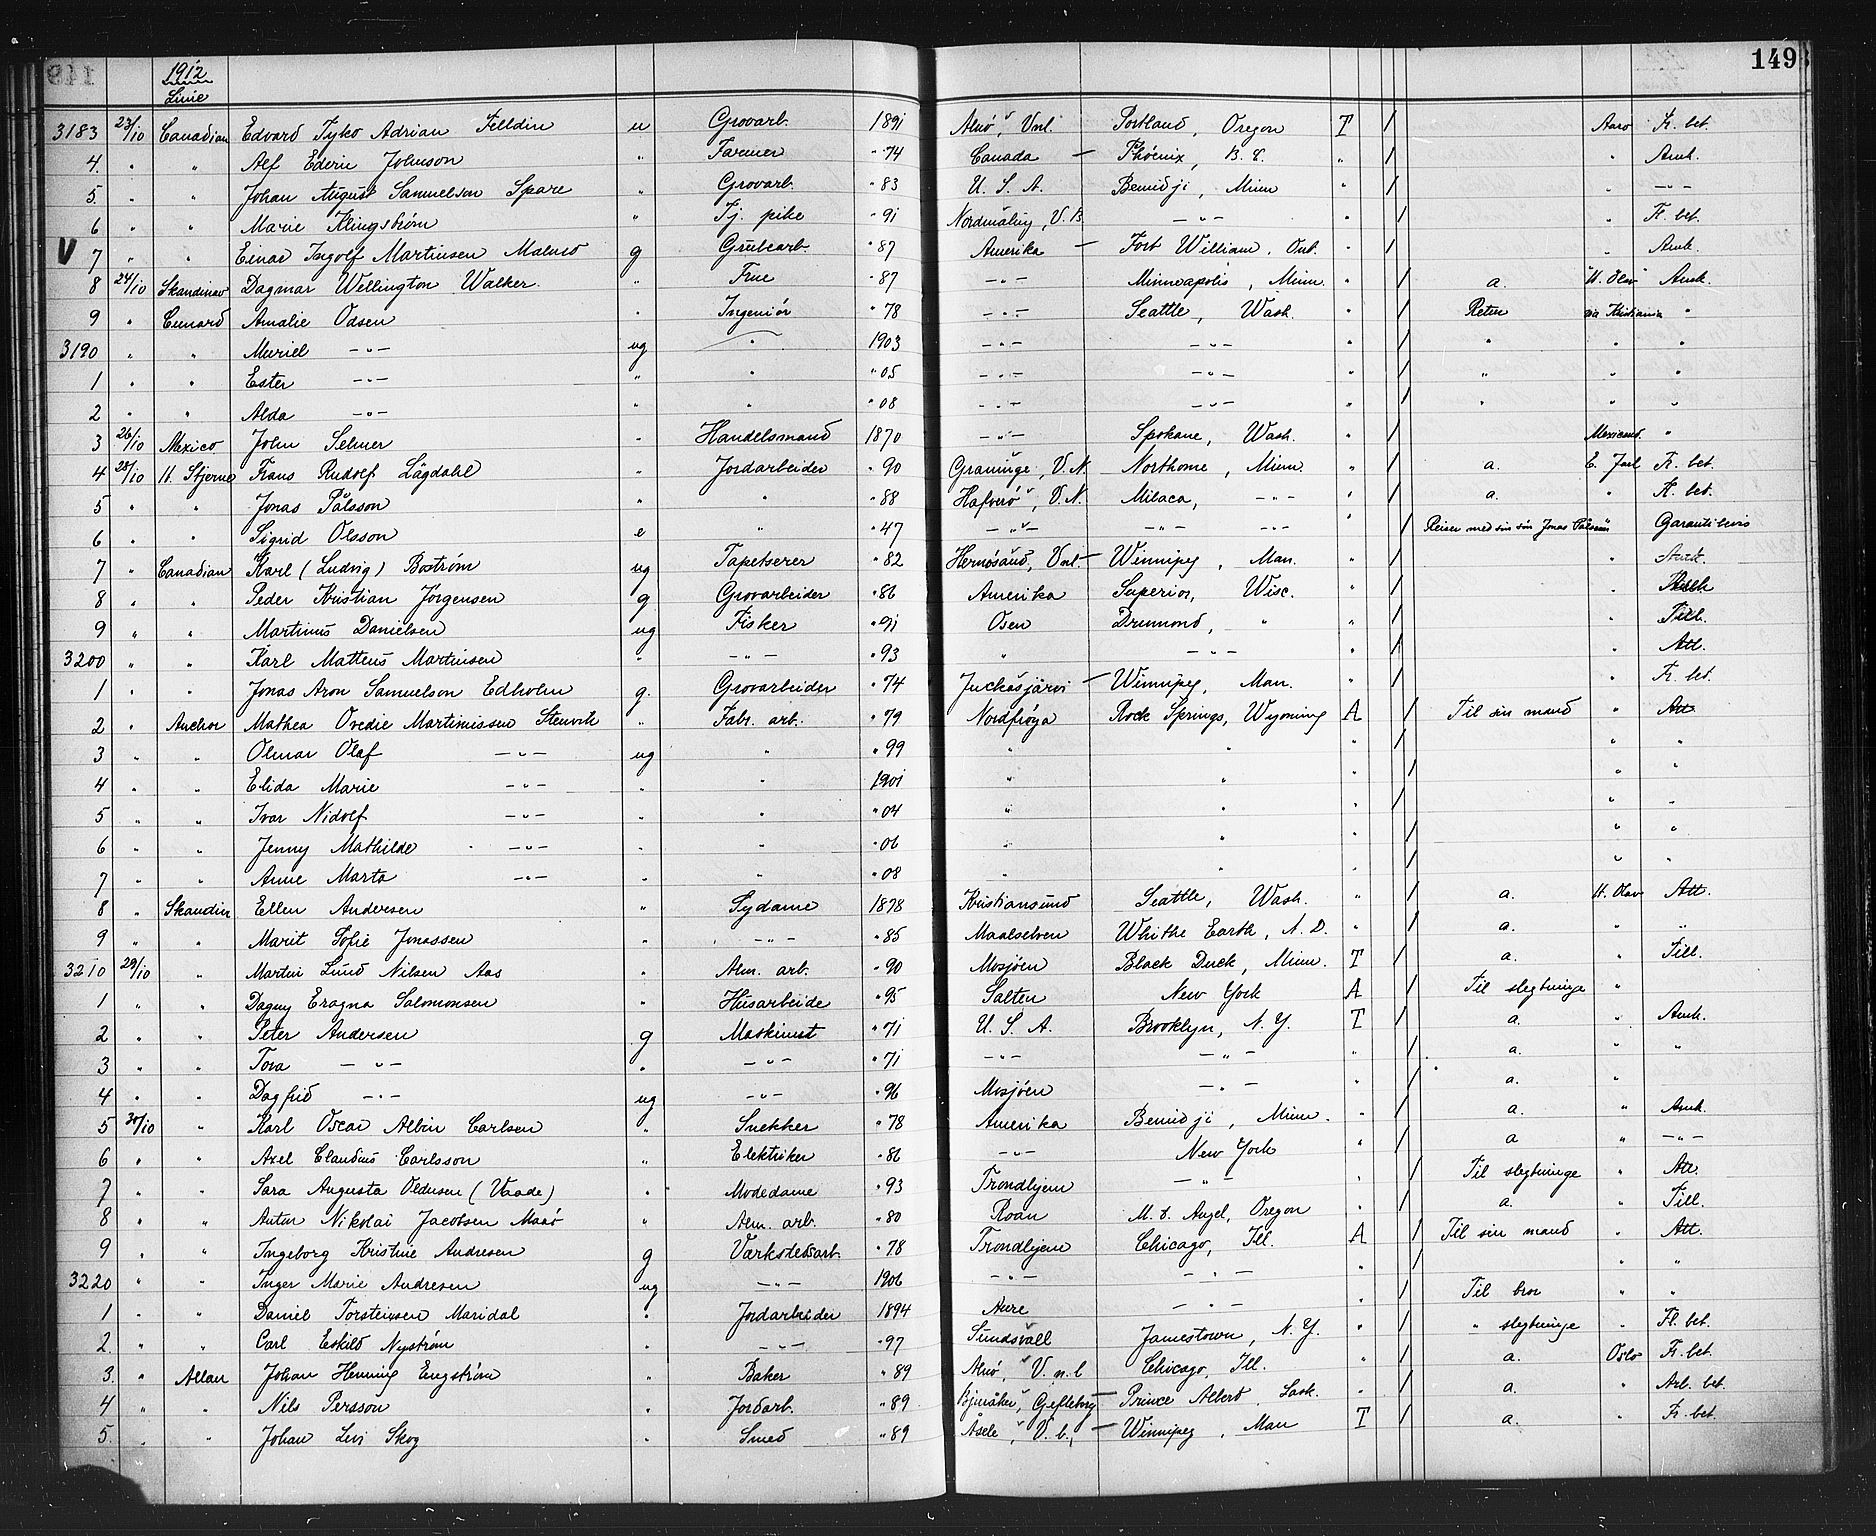 149
1912
Linie
3183 23/10 Canadian Edvard Tyko Adrian Filldin u Grovarb. 1891 Alnö, Vnl. Portland, Oregon T / Aaro Fr. bet.
4. " " Alf Ederin Johnson " Farmer " 74 Canada — Phöenix, B. C. " / " Amk.
5. " " Johan August Samuelson Spare " Grovarb. " 83 U. S. A. Bemidji, Minn " / " — " —
6 " " Marie Klingström " Tj. pike " 91 Nordmaling, V. B. — " — " / " Fr. bet.
V 7 " " Einar Ingolf Martinsen Malmo g Grubearb. " 87 Amerika — Fort William, Ont. " / " Amk.
8 24/10 Skandinav Dagmar Wellington Walker. " Frue " 87 — " — Minneapolis, Minn. " / a. "H. Olav" Amk.
9 " Cunard Amalie Odsen " Ingeniör " 78 — " — Seattle, Wash. " / Retur via Kristiania "
3190 " " Muriel — " — ug " 1903 — " — — " — " / " " "
1 " " Ester — " — " " " 05 — " — — " — " / " " "
2 " " Alda — " — " " " 08 — " — — " — " / " " "
3 26/10 Mexico John Selmer " Handelsmand 1870 — " — Spokane, Wash. " / Mexicand. "
4 28/10 H. Stjerne Frans Rudolf Lägdahl " Jordarbeider " 90 Graninge, V. N. Northome, Minn " / a. E. Jarl Fr. bet.
5 " " Jonas Pålsson " " " 88 Hafverö, V. N. Milaca, — " — " / a. " Fr. bet.
6 " " Sigrid Olsson e " " 47 — " — — " — — " — " / Reiser med sin sön Jonas Pålsson Garantibevis
7 " Canadian Karl (Ludvig) Boström ug Tapetserer " 82 Hernösand, Vnl. — Winnipeg, Man. " / " Amk.
8 " " Peder Kristian Jörgensen g Grovarbeider " 86 Amerika Superior, Wisc. " / "
9 " " Martinus Danielsen ug Fisker " 91 Osen Drummond, " " / " Till.
3200 " " Karl Matteus Martinsen " — " — " 93 " — " — " / " Att.
1 " " Jonas Aron Samuelson Edholm g. Grovarbeider " 74 Juckasjärvi — Winnipeg, Man. " / " Fr. bet.
2 " Anchor Mathea Ovedie Martinissen Stenvik " Fabr. arb. " 79 Nordfröya Rock Springs, Wyoming A / Til sin mand " Att
3 " " Olmar Olaf — " — ug " " 99 " " " / " "
4 " " Elida Marie — " — " " 1901 " " " / " "
5 " " Ivar Nidolf — " — " " " 04 " " " / " "
6 " " Jenny Mathilde — " — " " " 06 " " " / " "
7 " " Anne Marta — " — " " " 08 " " " / " "
8 " Skandin Ellen Andersen " Sydame 1878 Kristiansund Seattle, Wash. " / a. H. Olav Att.
9 " " Marit Sofie Jonassen " — " — " 85 Maalselven Whithe Earth, N. D. " / a. " "
3210 29/10 " Martin Lund Nilsen Aas " Alm. arb. " 90 Mosjöen Black Duck, Minn. T / a. " Till.
1 " " Dagny Eragna Salomonsen " Husarbeide " 95 Salten New York A / Til slegtninge "
2 " " Peter Andersen g Maskinist " 71 U. S. A. Brooklyn, N. Y. T / a. " Amk.
3 " " Tora — " — " — " — " 71 — " — — " — " / a. " "
4 " " Dagfrid — " — ug — " — " 96 Mosjöen — " — " / a. "
5 30/10 " Karl Oscar Albin Carlsen " Snekker " 78 Amerika Bemidji, Minn. " / a. " Amk.
6 " " Axel Claudius Carlsson " Elektriker " 86 — " — New York " / a " — " —
7 " " Sara Augusta Oldusen (Vaade) " Modedame " 93 Trondhjem — " — " / Til slegtninge " Att.
8 " " Anton Nikolai Jacobsen Masö " Alm. arb. " 80 Roan M. t. Angel, Oregon " / a. " Till.
9 " " Ingeborg Kristine Andresen g Værkstedsarb. " 78 Trondhjem Chicago, Ill. A / Til sin mand " Att.
3220 " " Inger Marie Andresen ug — " — 1906 — " — — " — " / " "
1 " " Daniel Torsteinsen Maridal " Jordarbeider 1894 Aure — " — " / Til bror " "
2. " " Carl Eskild Nyström " — " — " 97 Sundsvall Jamestown, N. Y. " / " slegtninge " Fl. bet.
3. " Allan Johan Henning Engström " Baker " 89 Alnö, V. n. l Chicago, Ill. " / a. Oslo Fr. bet.
4 " " Nils Persson " Jordarb. " 89 Bjuråker, Gefleborg — Prince Albert, Sask. " / a. " Arb. bet.
5. " " Johan Levi Skog " Smed " 89 Åsele, V. b., — Winnipeg, Man T / a. " Fr. bet.